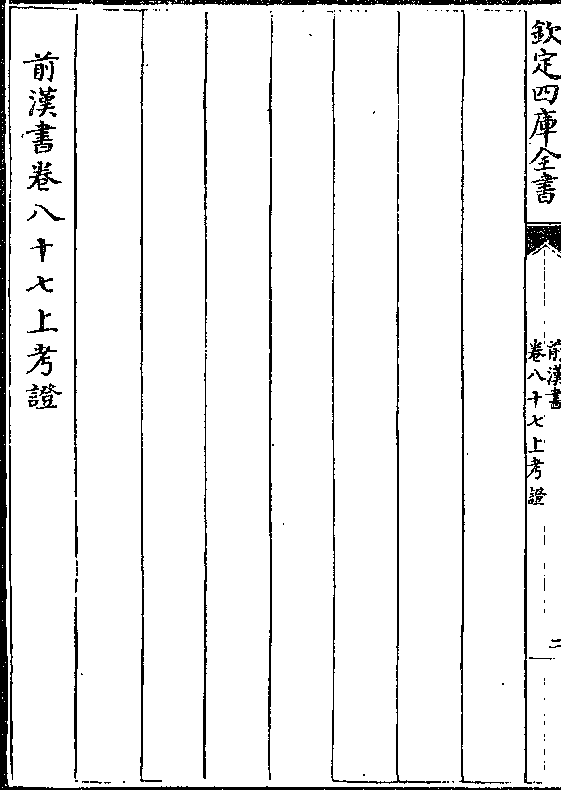 欽定四庫全書
前漢書
卷八十七上考證
二
前漢書卷八十七上考證